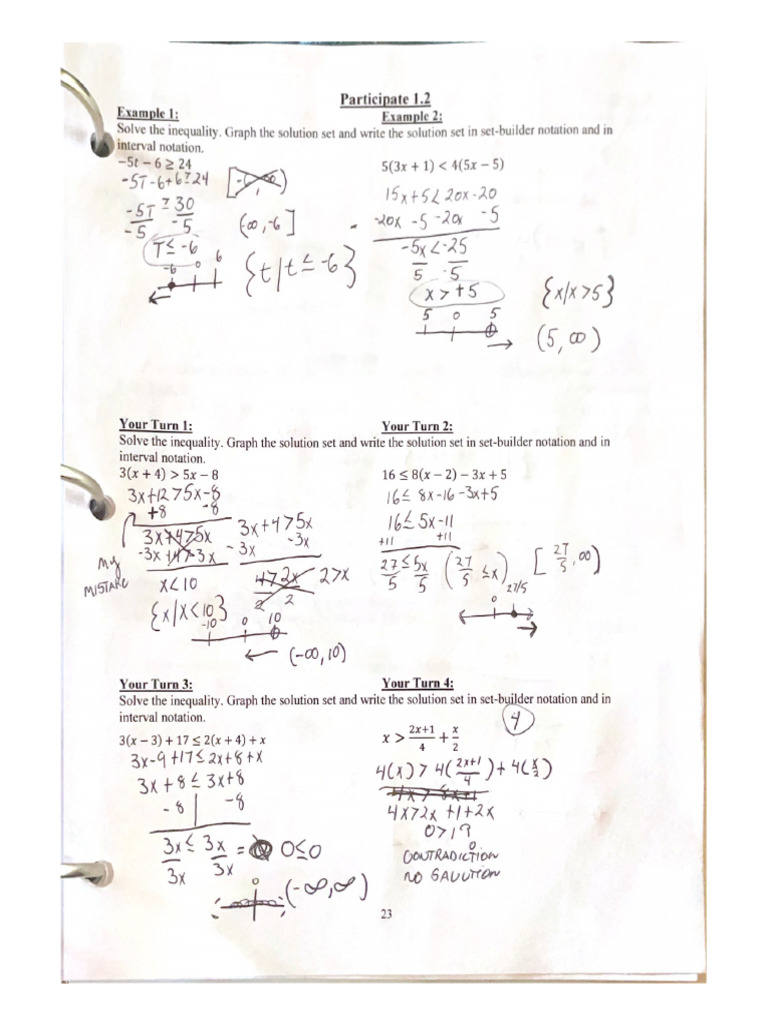 Participate 1.2
Example 1:
Example 2:
Solve the inequality. Graph the solution set and write the solution set in set-builder notation and in
interval notation.
−5t − 6 ≥ 24
-5T-6+6≥24
-5T ≥ 30
-5 -5
T ≤ -6
-6 0 6
(-∞,-6]
{t/t ≤ -6}
5(3x + 1) < 4(5x − 5)
15x+5<20x-20
-20x -5 -20x -5
-5x<-25
5 -5
x > +5
5 0 5
{x/x>5}
(5,∞)
Your Turn 1:
Your Turn 2:
Solve the inequality. Graph the solution set and write the solution set in set-builder notation and in
interval notation.
3(x + 4) > 5x − 8
3x+12>5x-8
+8 -8
3x+4>5x
-3x +4>-3x
my
MISTAKE
x<10
{x/x<10}
-10 0 10
(-∞,10)
3x+4>5x
-3x -3x
4>2x 2>x
2 2
16 ≤ 8(x − 2) − 3x + 5
16≤ 8x-16-3x+5
16≤ 5x-11
+11 +11
27 ≤ 5x
5 5
(27/5 ≤x)
[27/5,∞)
0 27/5
Your Turn 3:
Your Turn 4:
Solve the inequality. Graph the solution set and write the solution set in set-builder notation and in
interval notation.
3(x − 3) + 17 ≤ 2(x + 4) + x
3x-9+17≤2x+8+x
3x+8≤3x+8
-8 -8
3x ≤ 3x = 0≤0
3x 3x
0
(-∞,∞)
4
x > 2x+1/4 + x/2
4(x)>4(2x+1/4)+4(x/2)
4x>2x+1+2x
0>1?
0
CONTRADICTION
NO SALUTION
23